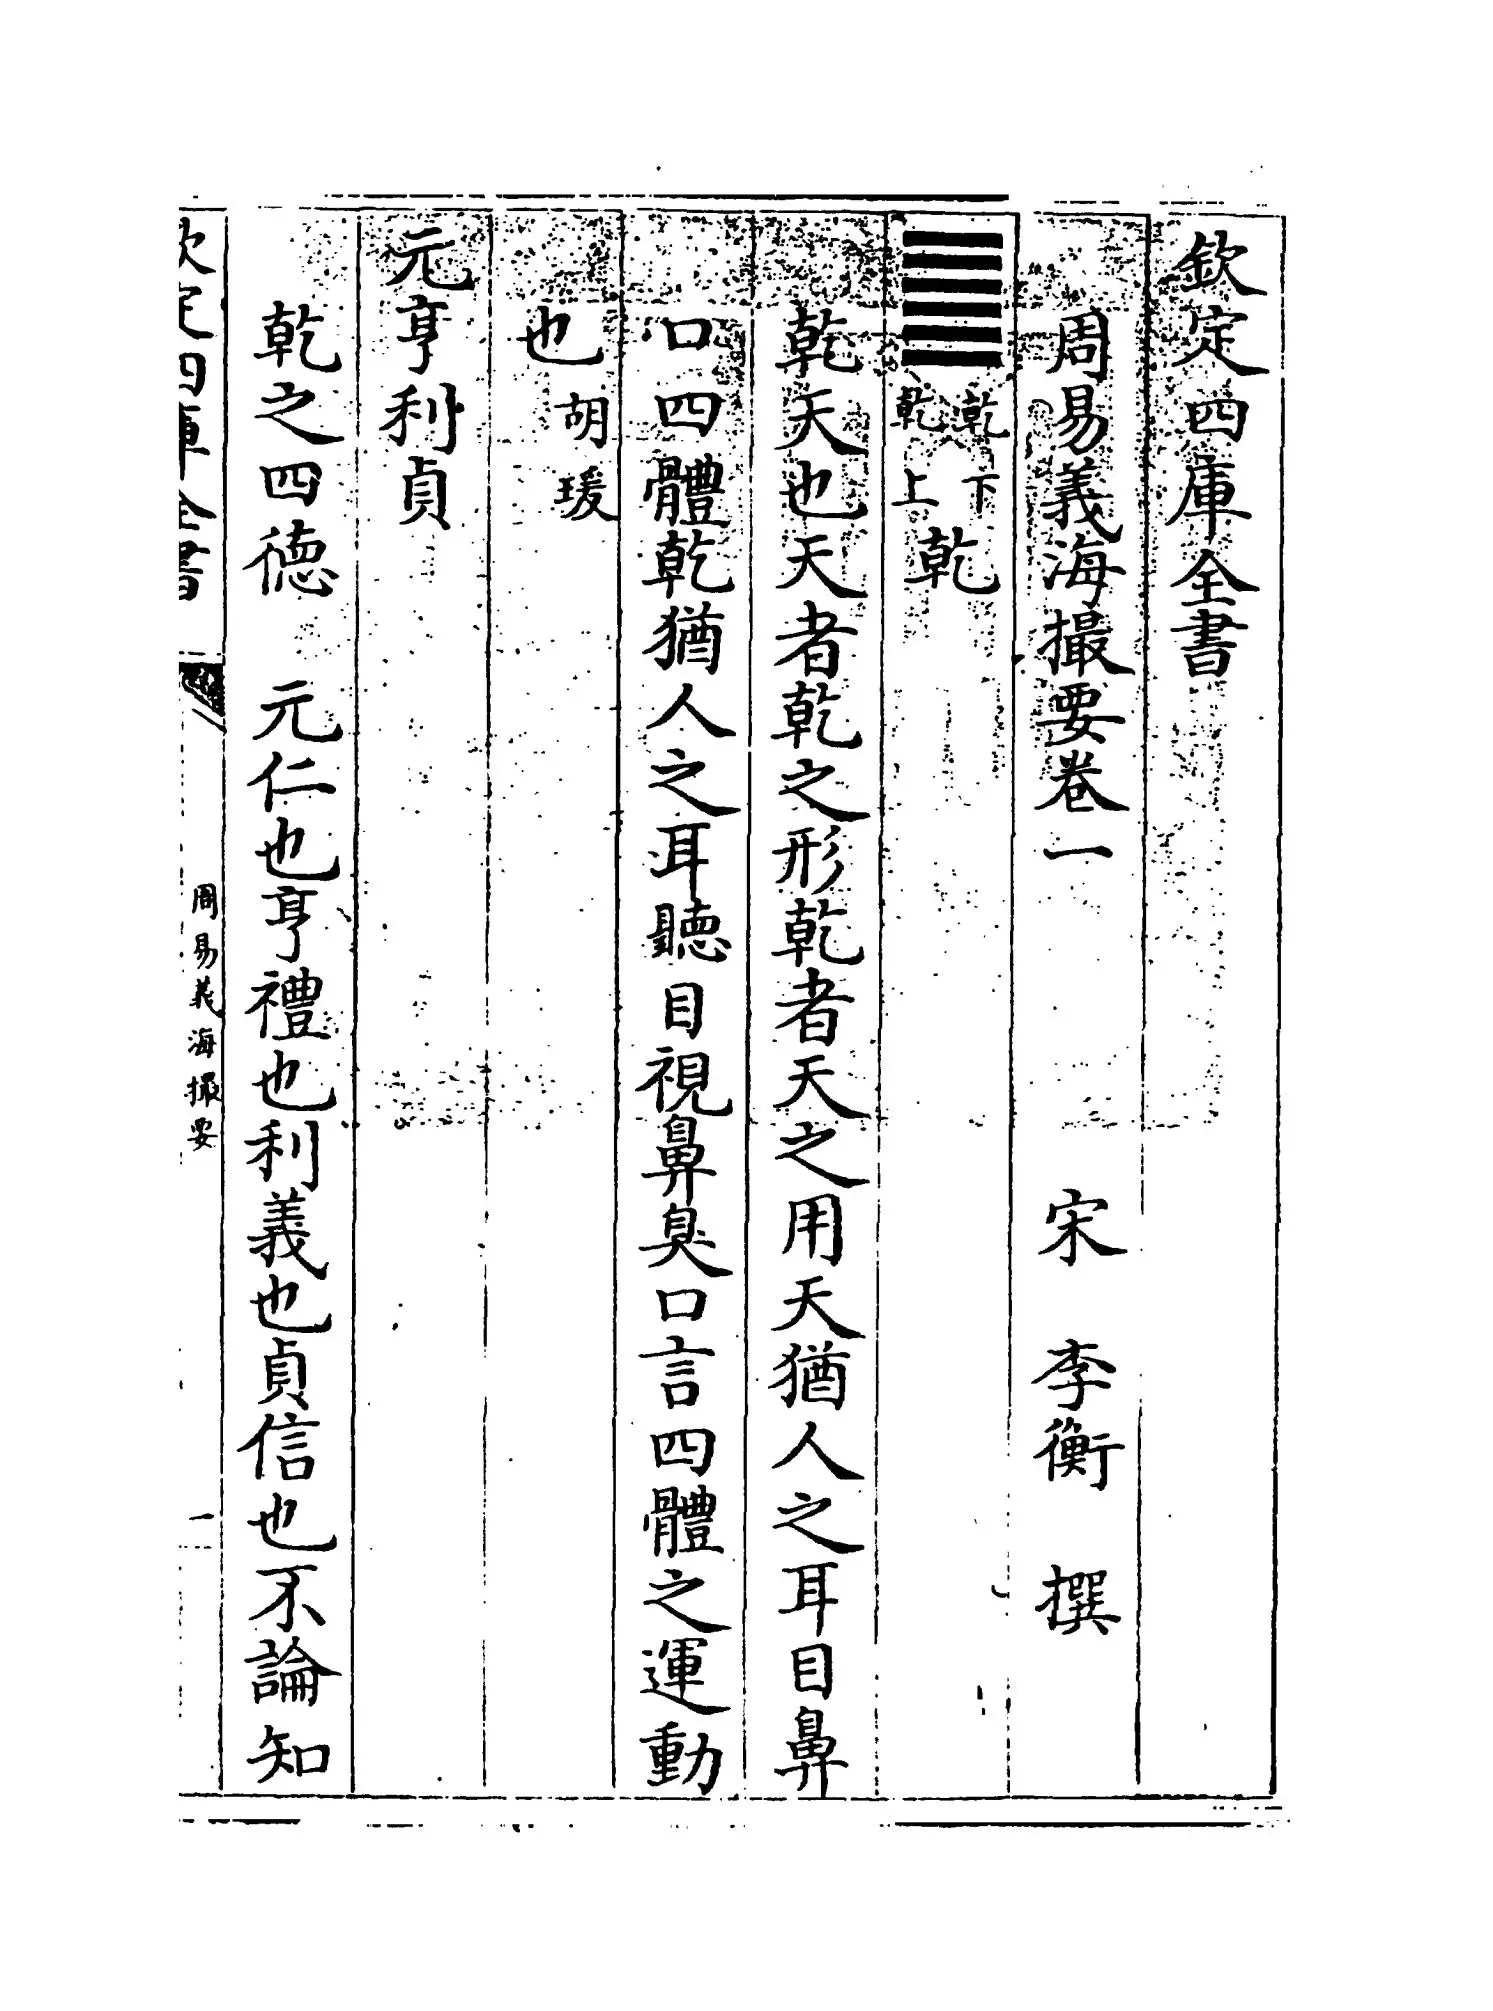 欽定四庫全書
周易義海撮要卷一
宋 李衡 撰
䷀
乾下
乾上
乾
乾天也天者乾之形乾者天之用天猶人之耳目鼻
口四體乾猶人之耳聽目視鼻臭口言四體之運動
也
胡瑗
元亨利貞
乾之四德 元仁也亨禮也利義也貞信也不論知
欽定四庫全書
周易義海撮要
一